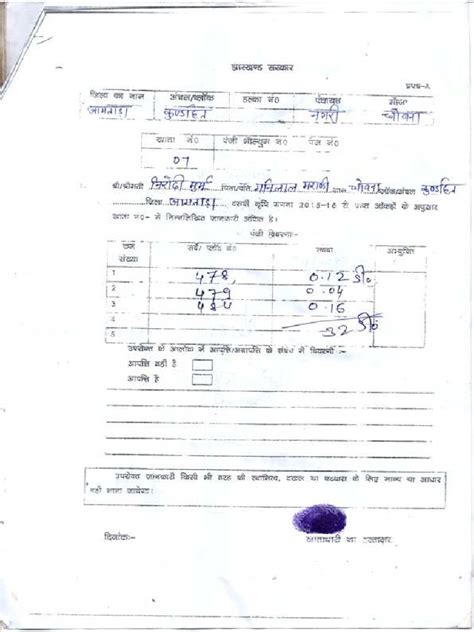 झारखण्ड सरकार
प्रपत्र-A
जिला का नाम अंचल/ब्लॉक हल्का नं0 पंचायत मौजा
जामताड़ा कुण्डहित नगरी
खाता नं0 पंजी भोल्युम नं0 पेज नं0
07
श्री/श्रीमती मुर्मू पिता/पति मनिलाल मरांडी ग्राम ब्लॉक/अंचल कुण्डहित
जिला जामताड़ा दसवीं कृषि गणना 2015-16 से प्राप्त आँकड़ों के अनुसार
खाता नं0- में निम्नलिखित जानकारी अंकित है।
पंजी विवरणः-
क्रम संख्या सर्वे/ प्लॉट नं0 रकवा अभ्युक्ति
1 478, 0.12 डी0
2 479 0.04
3 484 0.16
4
5 32 डी0
उपरोक्त के आलोक में आपत्ति/अनापत्ति के संबंध में विवरणी :-
आपत्ति नहीं है
आपत्ति है
उपरोक्त जानकारी किसी भी तरह की स्वामित्व, दखल या कब्जा के लिए मान्य या आधार
नहीं माना जायेगा।
दिनांकः- खाताधारी का हस्ताक्षर